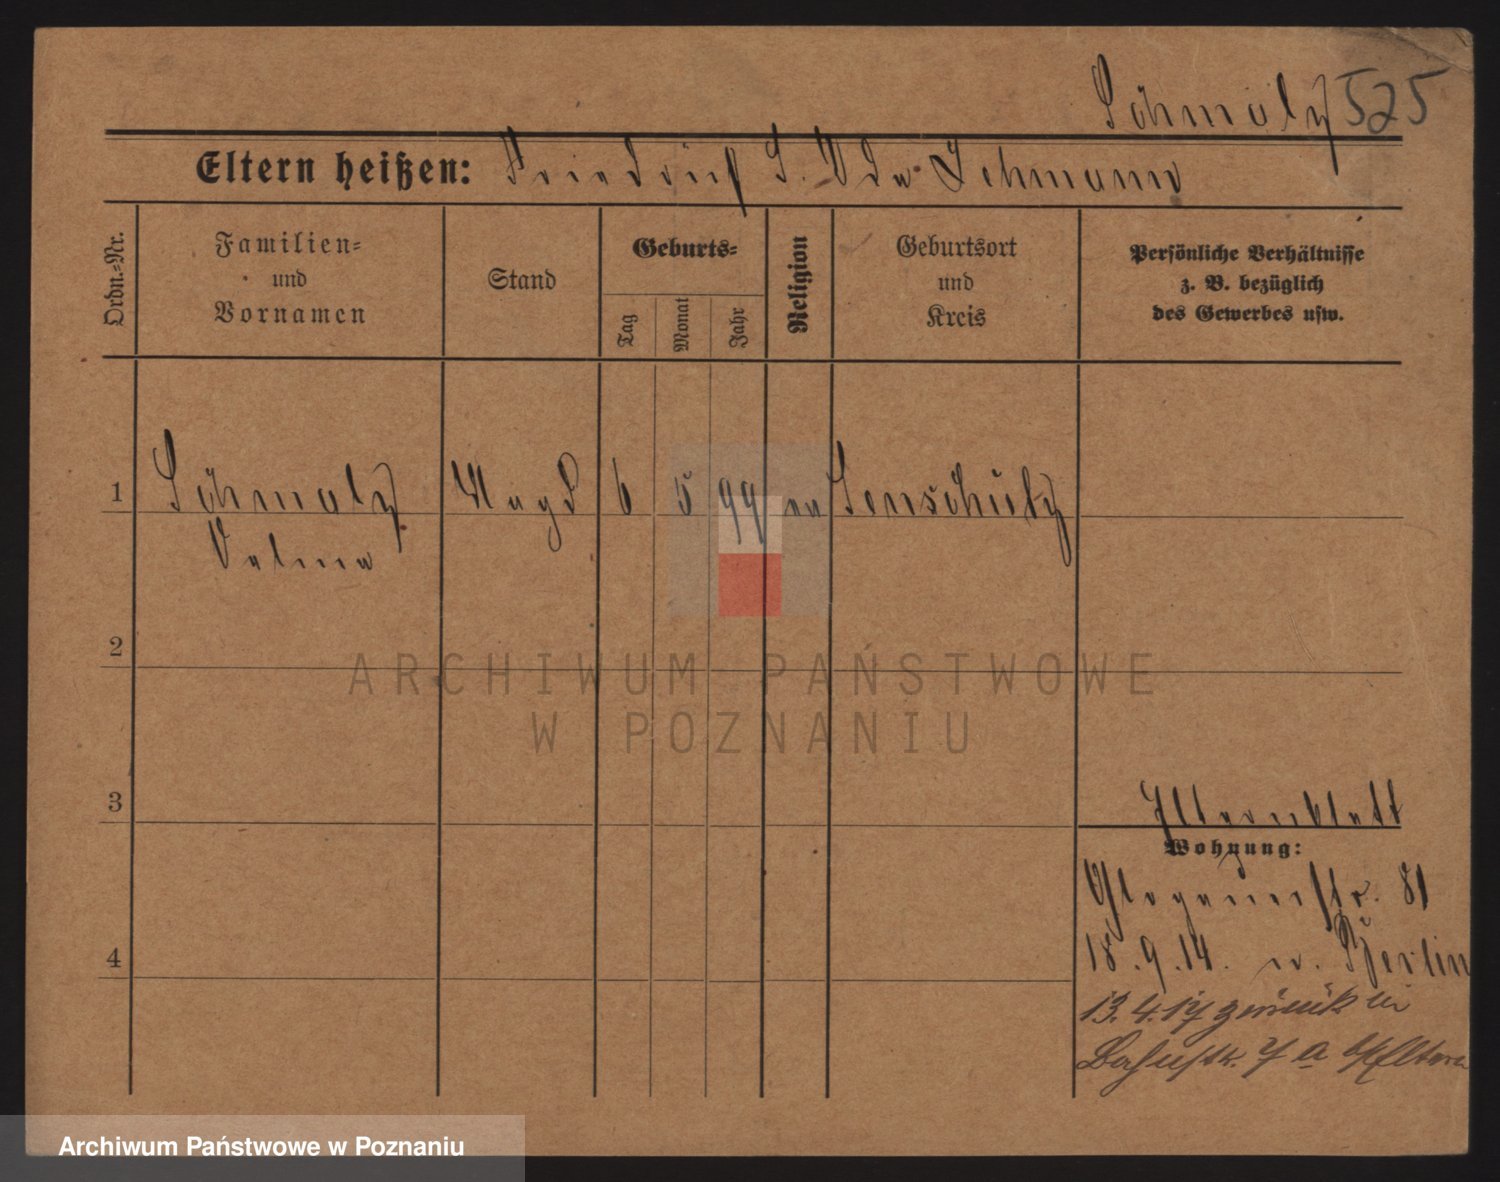 Schmolz 525
Eltern heißen: Friedrich S. Ida Lehmann
Ordn.-Nr.
Familien-
und
Vornamen
Stand
Geburts-
Tag
Monat
Jahr
Religion
Geburtsort
und
Kreis
Persönliche Verhältnisse
z. B. bezüglich
des Gewerbes usw.
1 Schmolz Magd 6 5 99 ev
2
3
4
Elternblatt
Wohnung:
Glogauerstr. 81
18.9.14. n. Berlin
13.4.17 zurück
Bahnstr. 7 a b/Eltern
ARCHIWUM PAŃSTWOWE
W POZNANIU
Archiwum Państwowe w Poznaniu